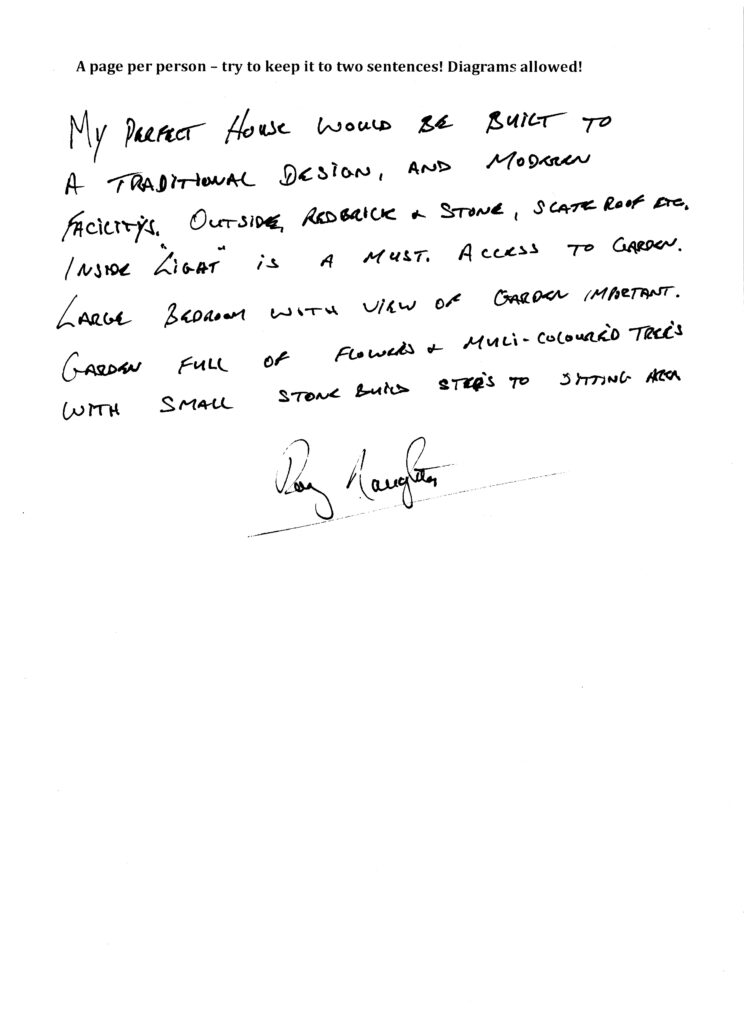 A page per person – try to keep it to two sentences! Diagrams allowed!
My PERFECT HOUSE WOULD BE BUILT TO
A TRADITIONAL DESIGN, AND MODEREN
FACILITY'S. OUTSIDE, REDBRICK & STONE, SLATE ROOF ETC.
INSIDE "LIGHT" is A MUST. ACCESS TO GARDEN.
LARGE BEDROOM WITH VIEW OF GARDEN IMPORTANT.
GARDEN FULL OF FLOWERS & MULI-COLOURED TREE'S
WITH SMALL STONE BUILD STEP'S TO SITTING AREA
Naughton